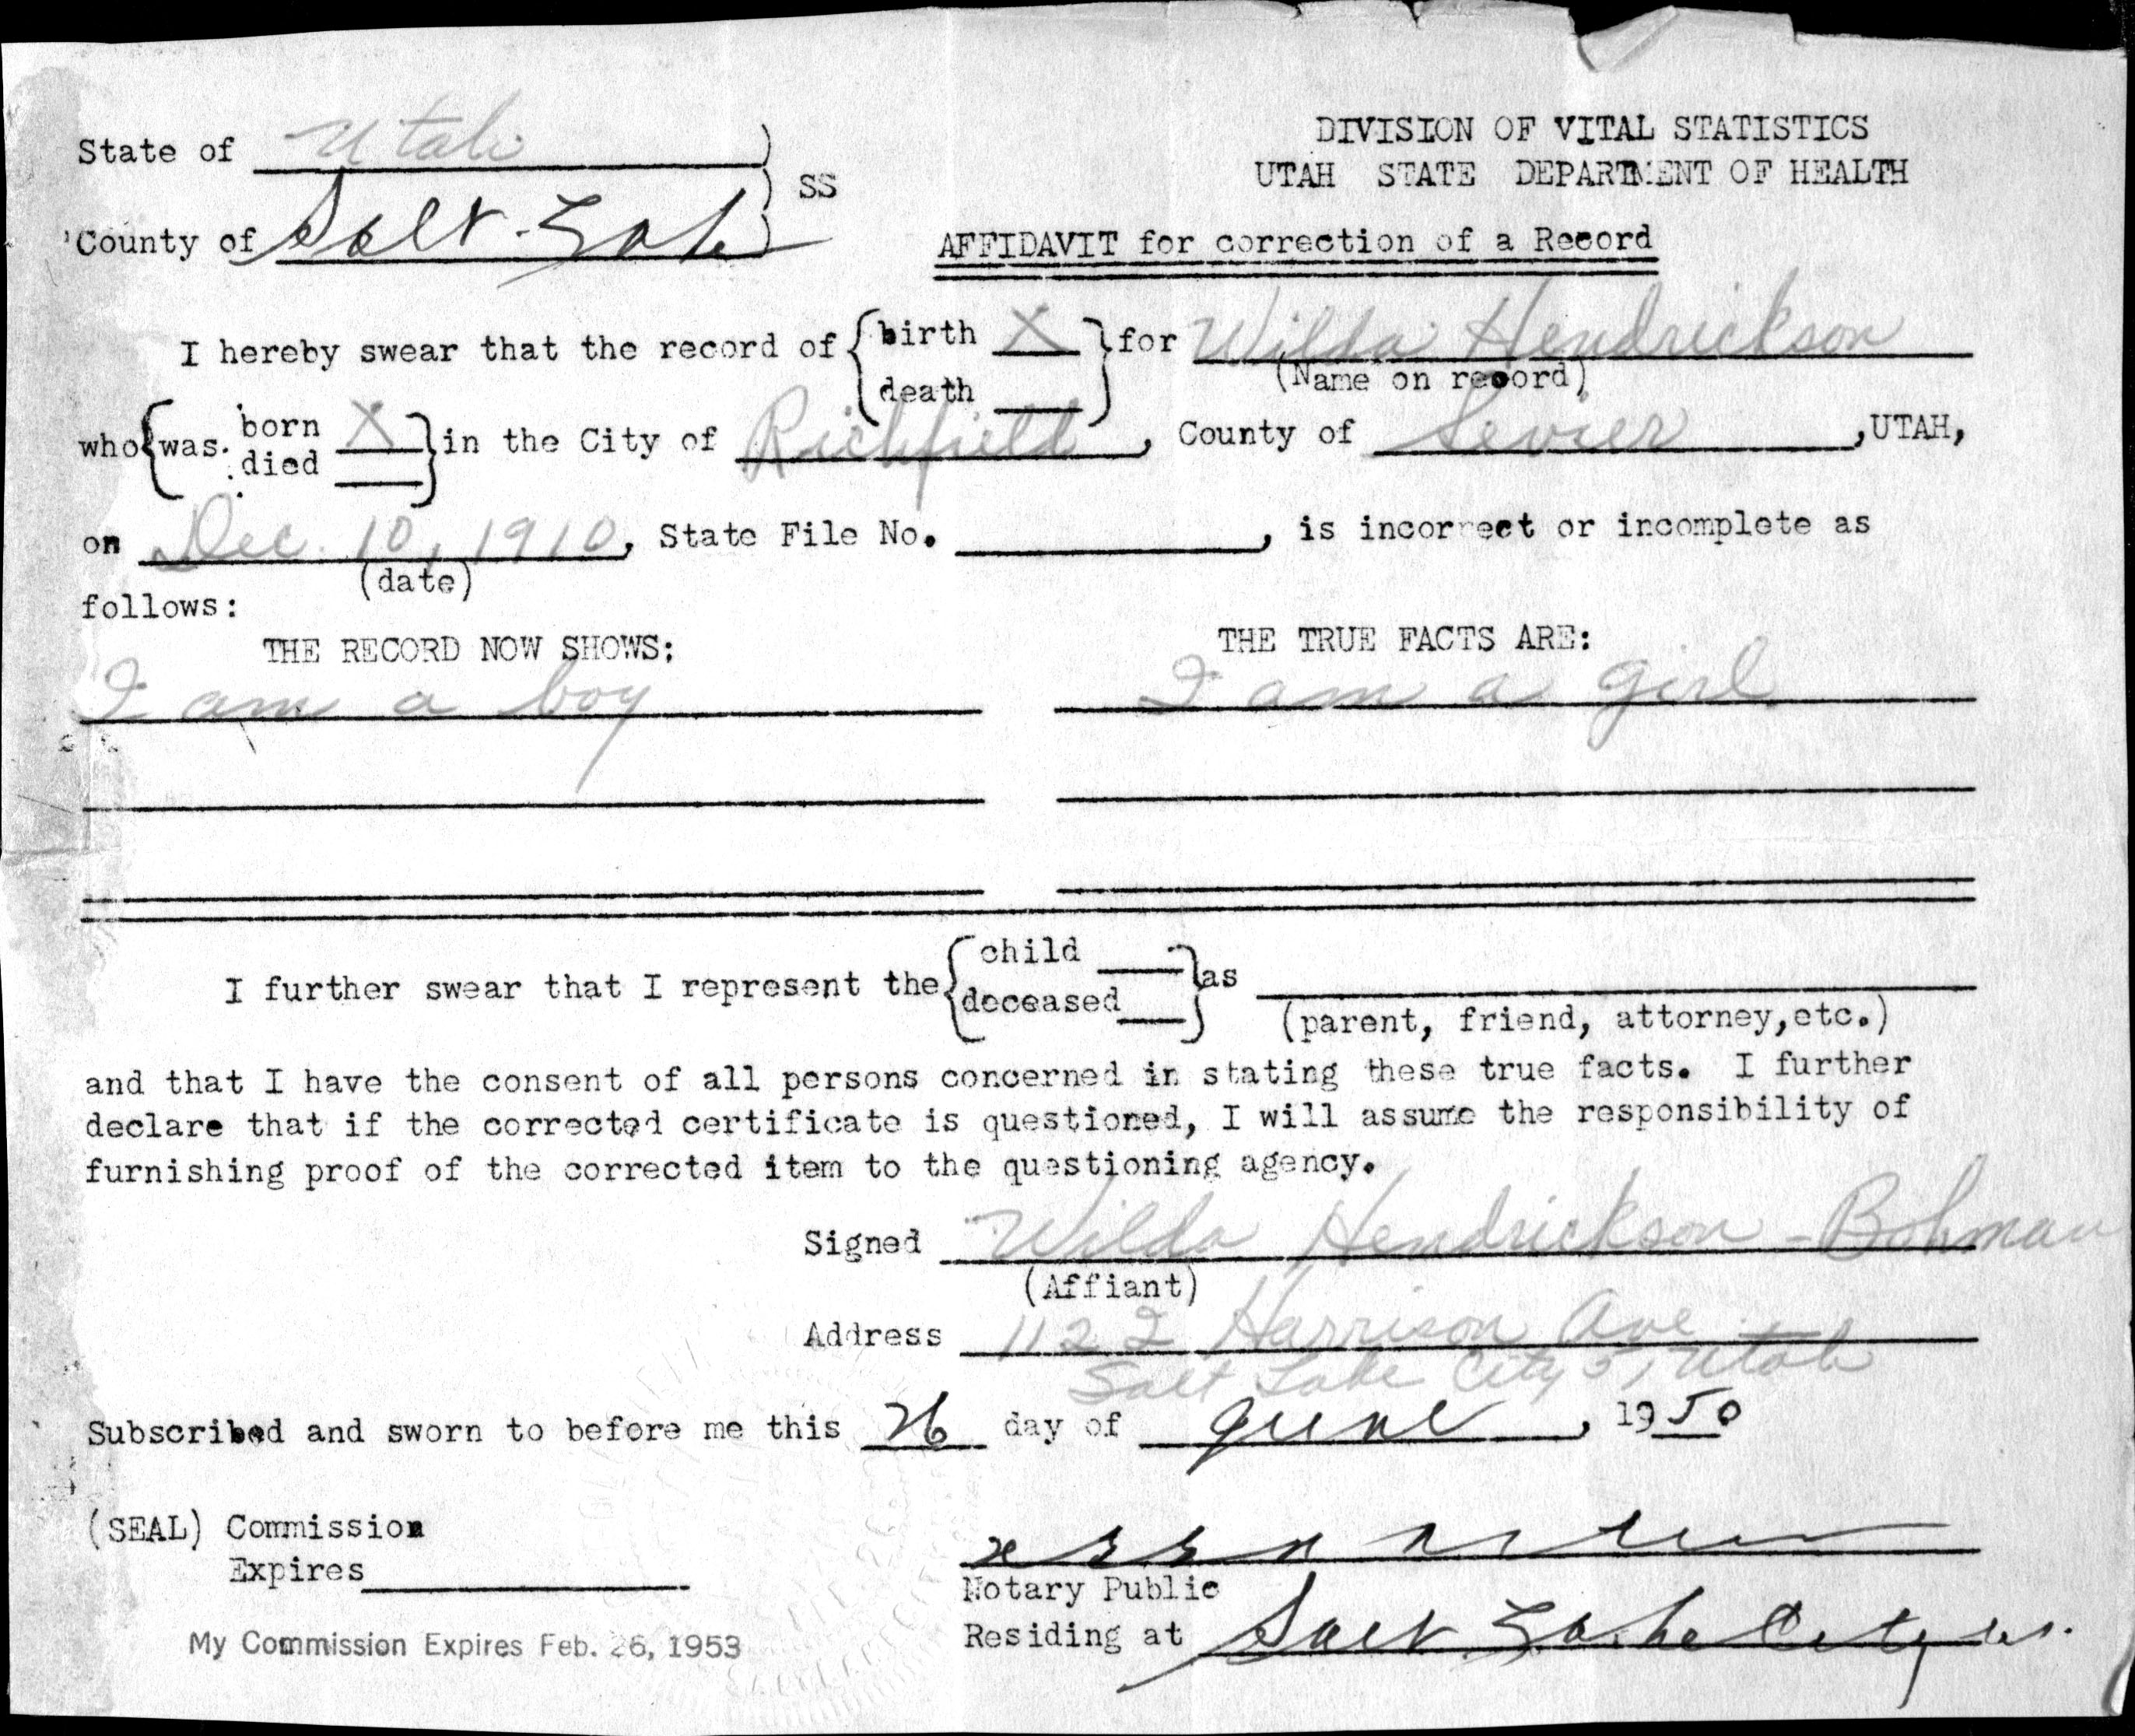 DIVISION OF VITAL STATISTICS
State of Utah
UTAH STATE DEPARTMENT OF HEALTH
SS
County of Salt Lake
AFFIDAVIT for correction of a Record
I hereby swear that the record of birth X for Wilda Hendrickson
death
(Name on record)
who was born X in the City of Richfield, County of Sevier, UTAH,
died
on Dec. 10, 1910, State File No. , is incorrect or incomplete as
(date)
follows:
THE RECORD NOW SHOWS: THE TRUE FACTS ARE:
I am a boy I am a girl
I further swear that I represent the child as
deceased
(parent, friend, attorney, etc.)
and that I have the consent of all persons concerned in stating these true facts. I further
declare that if the corrected certificate is questioned, I will assume the responsibility of
furnishing proof of the corrected item to the questioning agency.
Signed Wilda Hendrickson - Bohman
(Affiant)
Address 1122 Harrison Ave
Salt Lake City 5, Utah
Subscribed and sworn to before me this 26 day of June, 19 50
(SEAL) Commission
Expires
Notary Public
Residing at Salt Lake City
My Commission Expires Feb. 26, 1953